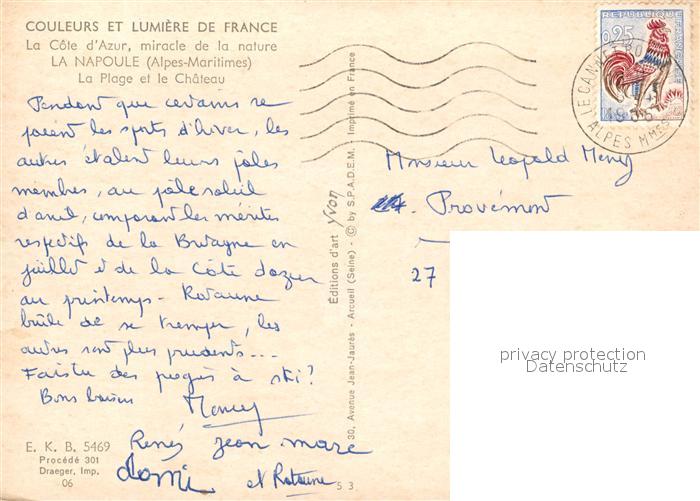 COULEURS ET LUMIÈRE DE FRANCE
La Côte d'Azur, miracle de la nature
LA NAPOULE (Alpes-Maritimes)
La Plage et le Château
Pendant que certains se
paient les sports d'hiver, les
autres étalent leurs pâles
membres, au pâle soleil
d'avril, comparant les mérites
respectifs de la Bretagne en
juillet et de la Côte d'azur
au printemps -
brûle de se tremper, les
autres sont plus prudents...
Fais tu des progrès à ski?
Bons baisers
Renés Jean Marc
et
E. K. B. 5469
Procédé 301
Draeger, Imp.
06
S 3
Éditions d'art yvon
30, Avenue Jean-Jaurès - Arcueil (Seine) - © by S.P.A.D.E.M. - Imprimé en France
REPUBLIQUE FRANÇAISE
0,25
LE CANNET
ALPES MMES
Monsieur Léopold
Provémont
27
privacy protection
Datenschutz